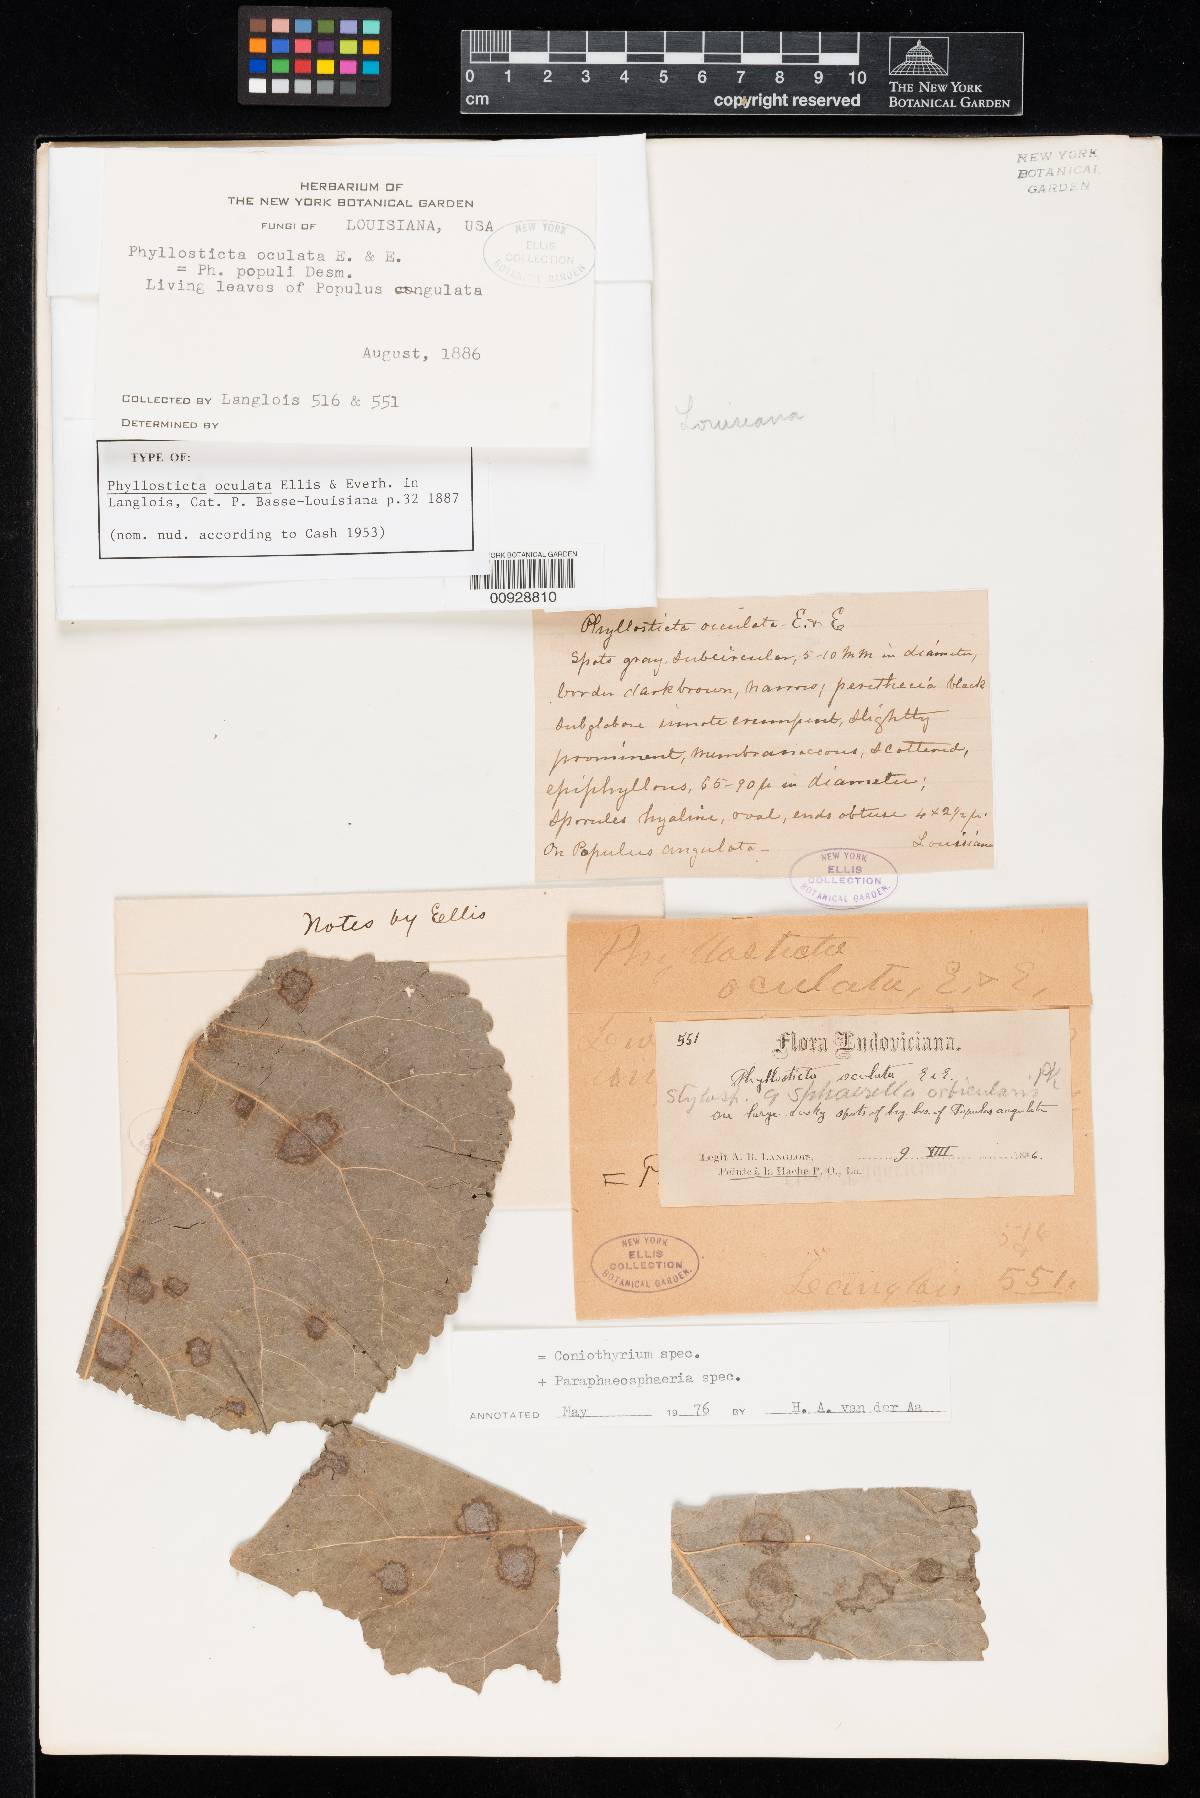 0 1 2 3 4 5 6 7 8 9 10
cm
copyright reserved
THE NEW YORK
BOTANICAL GARDEN
NEW YORK
BOTANICAL
GARDEN
HERBARIUM OF
THE NEW YORK BOTANICAL GARDEN
FUNGI OF LOUISIANA, USA
NEW YORK
ELLIS
COLLECTION
BOTANICAL GARDEN
Phyllosticta oculata E. & E.
= Ph. populi Desm.
Living leaves of Populus angulata
August, 1886
COLLECTED BY Langlois 516 & 551
DETERMINED BY
Louisiana
TYPE OF:
Phyllosticta oculata Ellis & Everh. in
Langlois, Cat. P. Basse-Louisiana p.32 1887
(nom. nud. according to Cash 1953)
YORK BOTANICAL GARDEN
00928810
Phyllosticta oculata E. & E
Spots gray. subcircular, 5-10 mm in diameter,
border dark brown, narrow; perithecia black
subglobose innate erumpent, slightly
prominent, membranaceous, scattered,
epiphyllous, 65-90µ in diameter;
Sporules hyaline, oval, ends obtuse 4 x 2½µ.
On Populus angulata - Louisiana
NEW YORK
ELLIS
COLLECTION
BOTANICAL GARDEN.
Notes by Ellis
Phyllosticta
oculata, E. & E.
551 Flora Ludoviciana.
Phyllosticta oculata E & E.
Stylosp. of Sphaerella orbicularis Pk
on large dusky spots of lvg. lvs. of Populus angulata
Legit A. B. LANGLOIS, 9 VIII 1886.
Pointe à la Hache P. O., La.
NEW YORK
ELLIS
COLLECTION
BOTANICAL GARDEN.
516
&
Langlois 551.
= Coniothyrium spec.
+ Paraphaeosphaeria spec.
ANNOTATED May 1976 BY H. A. van der Aa